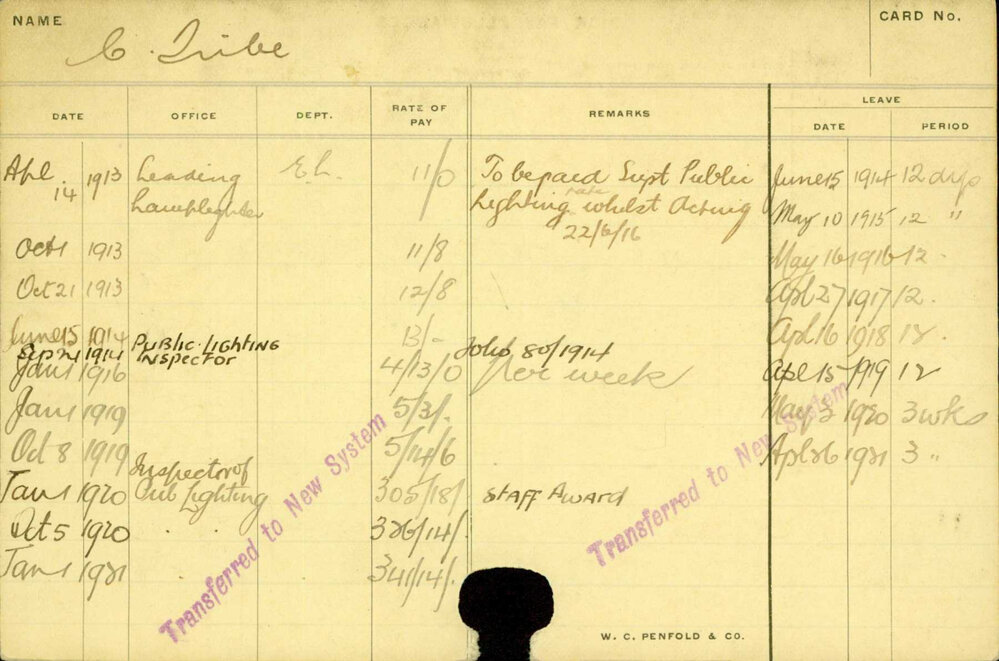 NAME
C. Tribe
CARD No.
LEAVE
DATE OFFICE DEPT. RATE OF PAY REMARKS DATE PERIOD
Apl 14 1913 Leading E.L. 11/0 To be paid Supt Public June 15 1914 12 dys
Lamplighter Lighting rate whilst Acting May 10 1915 12 "
22/6/16
Oct 1 1913 11/8 May 16 1916 12.
Oct 21 1913 12/8 Apl 27 1917 12.
June 15 1914 13/- Apl 16 1918 12.
Sep 21 1914 PUBLIC LIGHTING INSPECTOR 80/1914
Jan 1 1916 4/13/0 Per week Apl 15 1919 12
Jan 1 1919 5/3/- May 3 1920 3 wks
Oct 8 1919 5/14/6 Apl 26 1921 3 "
Inspector of
Jan 1 1920 Pub Lighting 305/18/- STAFF AWARD
Oct 5 1920 " " 326/14/-
Jan 1 1921 341/14/-
Transferred to New System
Transferred to New System
W. C. PENFOLD & CO.